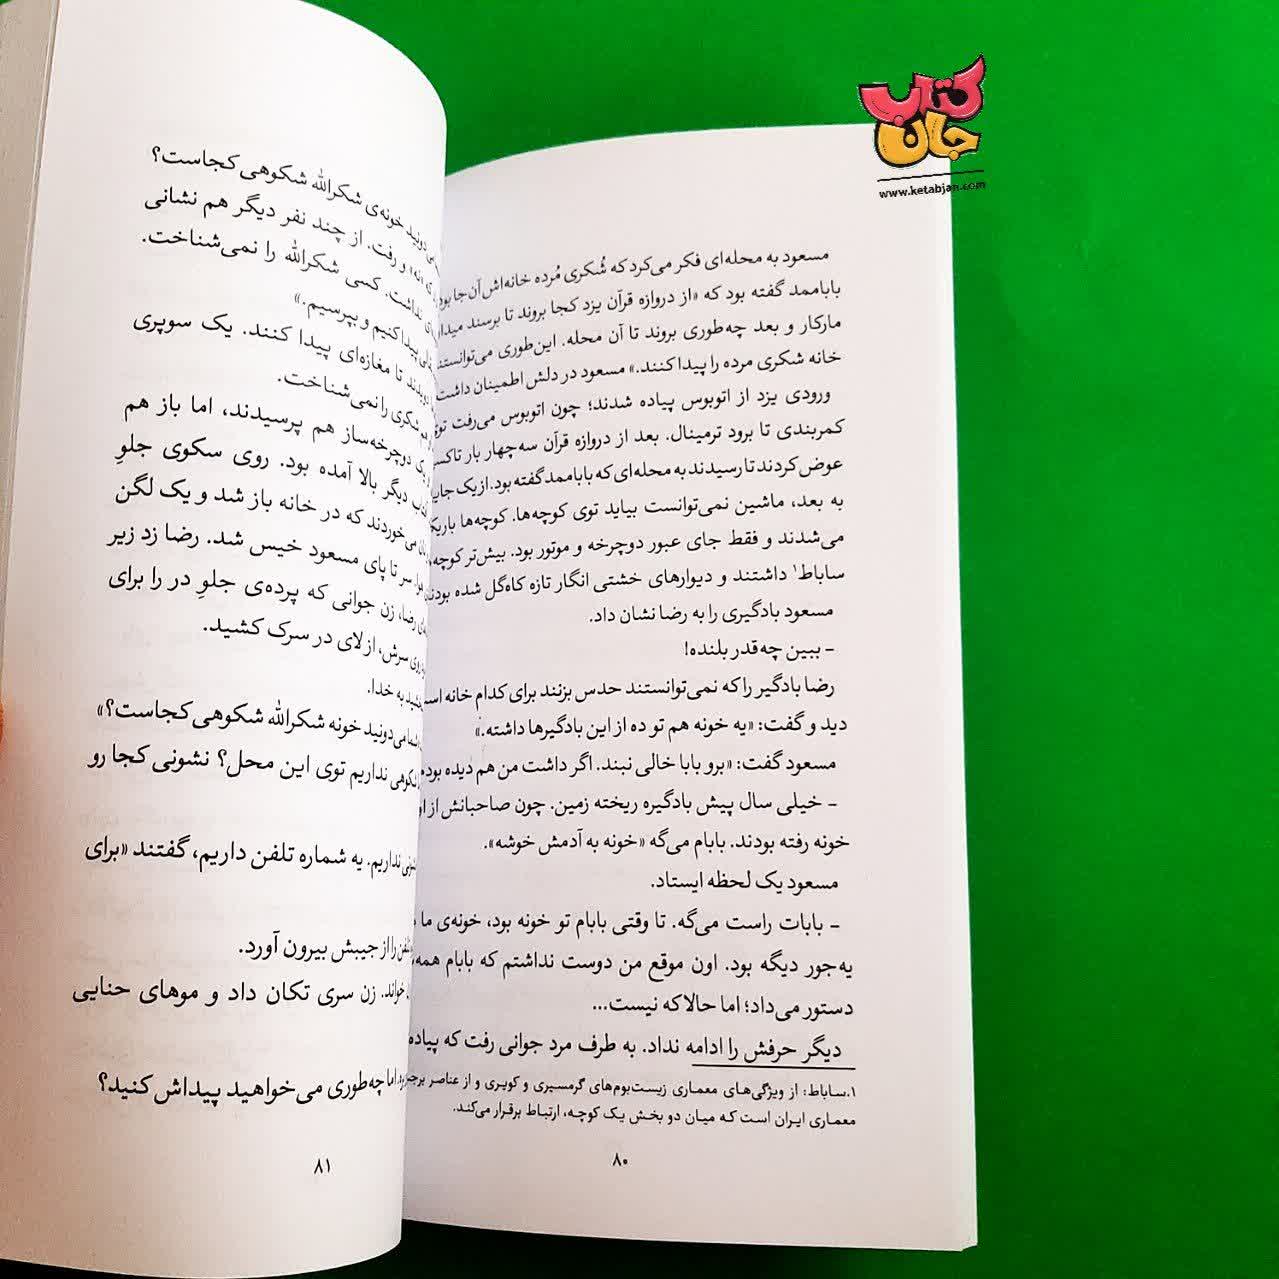 کتاب
جان
www.ketabjan.com
مسعود به محله‌ای فکر می‌کرد که شُکری مُرده خانه‌اش آن‌جا بود
باباممد گفته بود که «از دروازه قرآن یزد کجا بروند تا برسند
مارکار و بعد چه‌طوری بروند تا آن محله. این‌طوری می‌توانستند
خانه شکری مرده را پیدا کنند.» مسعود در دلش اطمینان داشت
ورودی یزد از اتوبوس پیاده شدند؛ چون اتوبوس می‌رفت
کمربندی تا برود ترمینال. بعد از دروازه قرآن سه‌چهار بار
عوض کردند تا رسیدند به محله‌ای که باباممد گفته بود. از یک
به بعد، ماشین نمی‌توانست بیاید توی کوچه‌ها. کوچه‌ها
می‌شدند و فقط جای عبور دوچرخه و موتور بود. بیش‌تر
ساباط۱ داشتند و دیوارهای خشتی انگار تازه کاه‌گل شده بودند
مسعود بادگیری را به رضا نشان داد.
- ببین چه‌قدر بلنده!
رضا بادگیر را که نمی‌توانستند حدس بزنند برای کدام خانه
دید و گفت: «یه خونه هم تو ده از این بادگیرها داشته.»
مسعود گفت: «برو بابا خالی نبند. اگر داشت من هم دیده بودم
- خیلی سال پیش بادگیره ریخته زمین. چون صاحبانش از
خونه رفته بودند. بابام می‌گه «خونه به آدمش خوشه».
مسعود یک لحظه ایستاد.
- بابات راست می‌گه. تا وقتی بابام تو خونه بود، خونه‌ی ما
یه‌جور دیگه بود. اون موقع من دوست نداشتم که بابام همه‌
دستور می‌داد؛ اما حالا که نیست...
دیگر حرفش را ادامه نداد. به طرف مرد جوانی رفت که
۱.ساباط: از ویژگی‌های معماری زیست‌بوم‌های گرمسیری و کویری و از عناصر
معماری ایران است که میان دو بخش یک کوچه، ارتباط برقرار می‌کند.
۸۰
دونید خونه‌ی شکرالله شکوهی کجاست؟
و رفت. از چند نفر دیگر هم نشانی
نداشت. کسی شکرالله را نمی‌شناخت.
پیدا کنیم و بپرسیم.»
تا مغازه‌ای پیدا کنند. یک سوپری
هم شکری را نمی‌شناخت.
یک دوچرخه‌ساز هم پرسیدند، اما باز هم
دیگر بالا آمده بود. روی سکوی جلوِ
می‌خوردند که در خانه باز شد و یک لگن
سر تا پای مسعود خیس شد. رضا زد زیر
رضا، زن جوانی که پرده‌ی جلوِ در را برای
روی سرش، از لای در سرک کشید.
به خدا.
شما می‌دونید خونه شکرالله شکوهی کجاست؟»
نداریم توی این محل؟ نشونی کجا رو
نداریم. یه شماره تلفن داریم، گفتند «برای
را از جیبش بیرون آورد.
خواند. زن سری تکان داد و موهای حنایی
اما چه‌طوری می‌خواهید پیداش کنید؟
۸۱